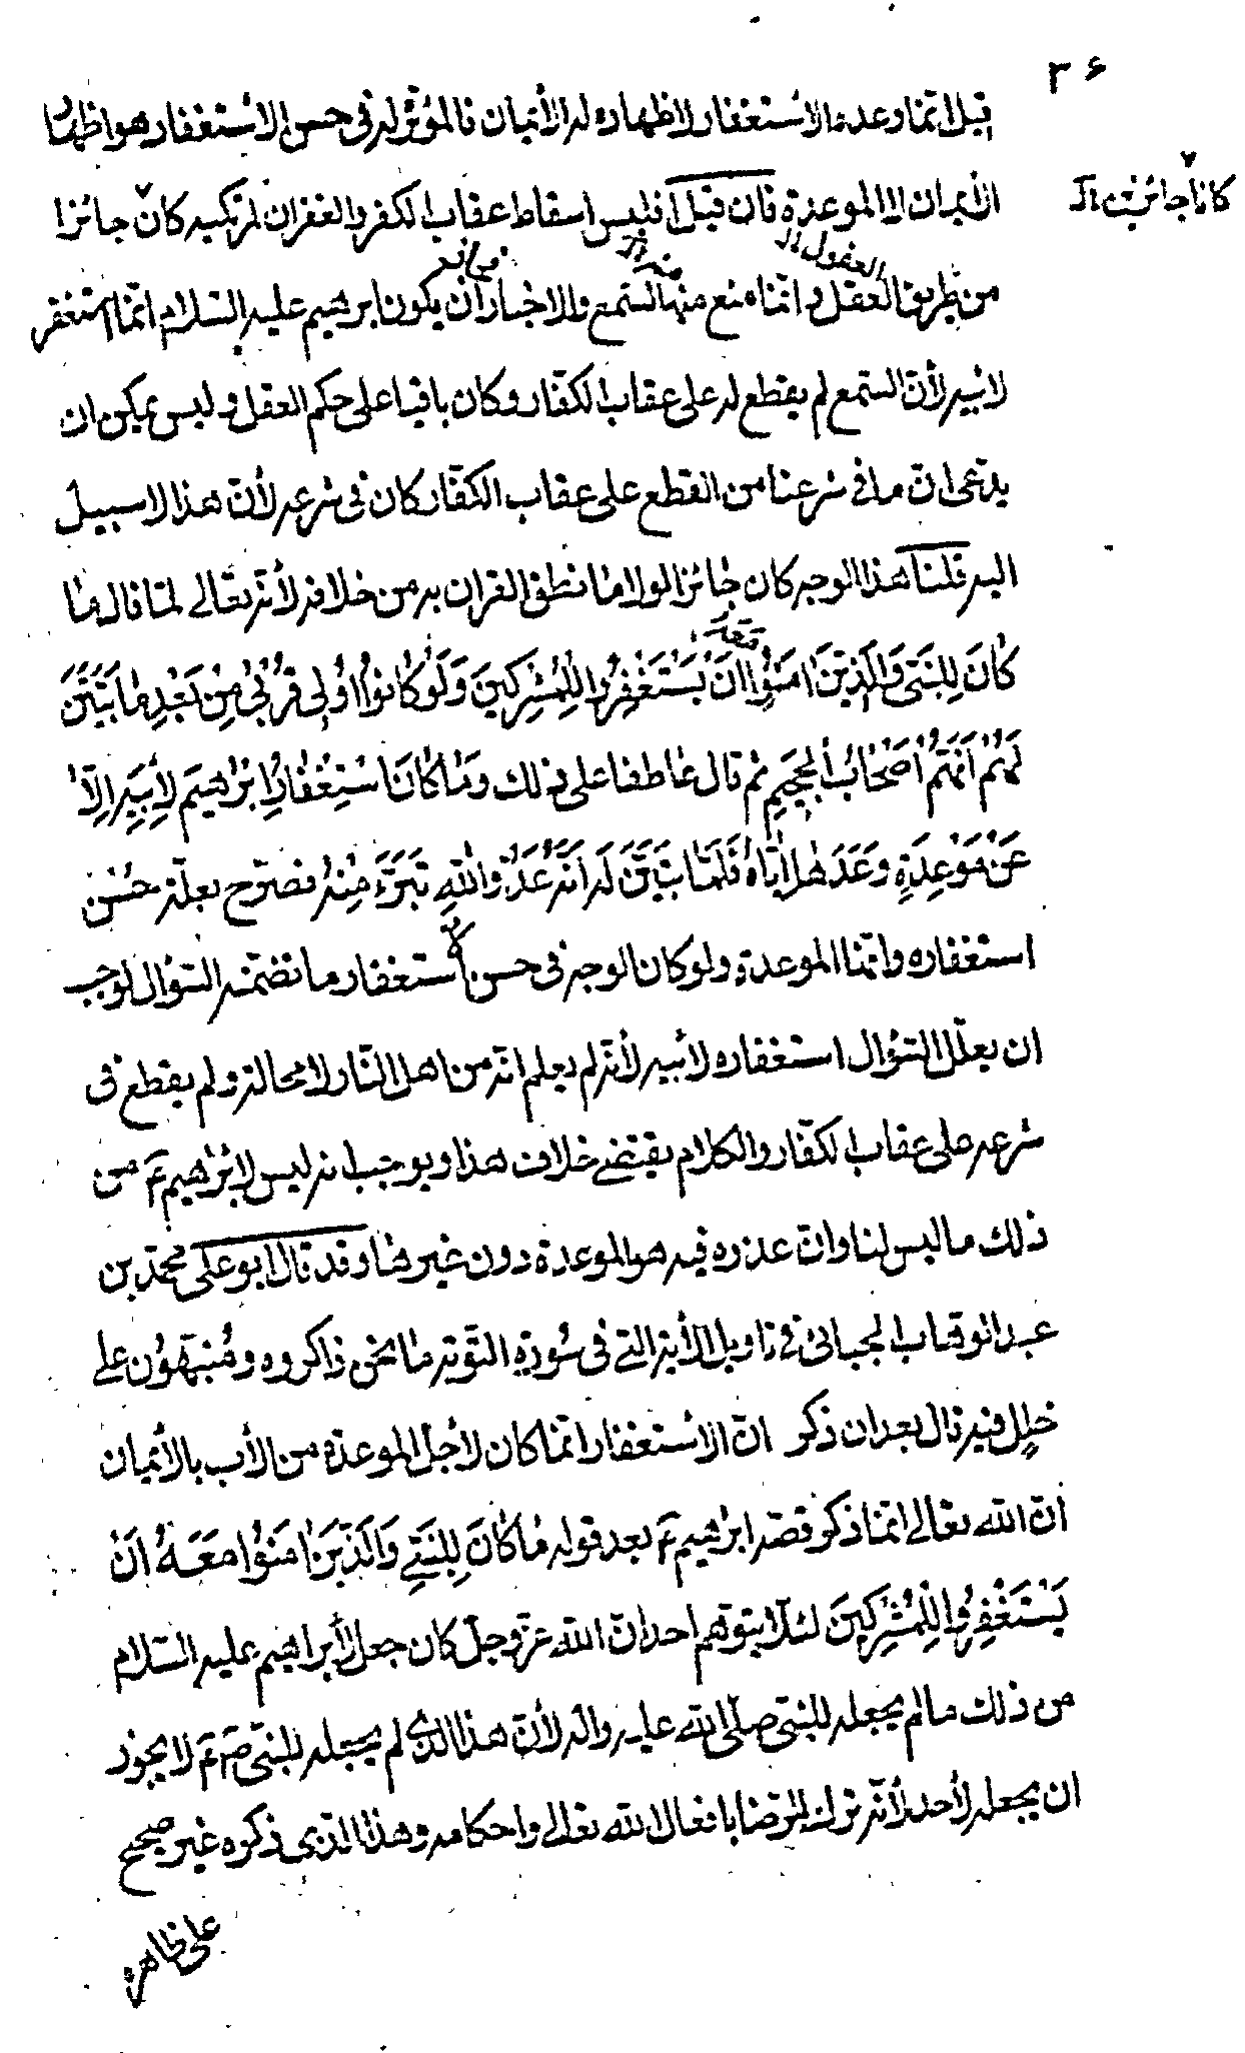 ٣۶
قيل انما وعده بالاستغفار لاظهاره له الأيمان فالمؤثر له فى حسن الاستغفار هو اظهار
الأيمان لا الموعدة فان قيل افليس اسقاط عقاب الكفر والغفران لمرتكبه كان جائزا
كانا جائزين
من طريق العقل و انما منع منه السّمع والا جاز ان يكون ابرهيم عليه السّلام انّما استغفر
لابيه لأنّ السّمع لم يقطع له على عقاب الكفّار وكان باقيا على حكم العقل وليس يمكن ان
يدّعى انّ ما فى شرعنا من القطع على عقاب الكفّار كان فى شرعه لأنّ هذا لا سبيل
اليه قلنا هذا الوجه كان جائزا لولا ما نطق القران به من خلافه لأنّه تعالى لمّا قال ما
كَانَ لِلنَّبِىِّ وَالَّذِينَ امَنُوا اَنْ يَسْتَغْفِرُوا لِلْمُشْرِكِينَ وَلَوْ كَانُوا اُولِى قُرْبىٰ مِنْ بَعْدِ مَا تَبَيَّنَ
لَهُمْ اَنَّهُمْ اَصْحَابُ الْجَحِيمِ ثم قال عاطفا على ذلك وَمَا كَانَ اسْتِغْفَارُ اِبْرٰهِيمَ لِأَبِيهِ اِلَّا
عَنْ مَوْعِدَةٍ وَعَدَهَا اِيَّاهُ فَلَمَّا تَبَيَّنَ لَهُ اَنَّهُ عَدُوٌّ لِلّٰهِ تَبَرَّءَ مِنْهُ فصرّح بعلّة حسن
استغفاره وانّها الموعدة ولو كان الوجه فى حسن الاستغفار ما تضمّنه السّؤال لوجب
ان يعلّل السّؤال استغفاره لأبيه لأنّه لم يعلم انّه من اهل النّار لا محالة ولم يقطع فى
شرعه على عقاب الكفّار والكلام يقتضى خلاف هذا ويوجب انه ليس لابرٰهيم ع من
ذلك ما ليس لنا وانّ عذره فيه هو الموعدة دون غيرها وقد قال ابو على محمّد بن
عبد الوهّاب الجبائى فى تاويل الأية التى فى سورة التّوبة ما نحن ذاكروه ومُنبّهون على
خللٍ فيه قال بعد ان ذكر انّ الأستغفار انّما كان لأجل الموعدة من الأب بالأيمان
انّ الله تعالى انّما ذكر قصّة ابرٰهيم ع بعد قوله مَا كَانَ لِلنَّبِىِّ وَالَّذِينَ امَنُوا مَعَهُ اَنْ
يَسْتَغْفِرُوا لِلْمُشْرِكِينَ لئلّا يتوهّم احد انّ الله عزّ وجلّ كان جعل لأبراهيم عليه السّلام
من ذلك ما لم يجعله للنّبىّ صلّى الله عليه واله لأنّ هذا الّذى لم يجعله للنّبىّ ص ع لا يجوز
ان يجعله لأحد لأنّه ترك الرّضا بافعال الله تعالى واحكامه وهذا الذى ذكره غير صحيح
على ظاهره